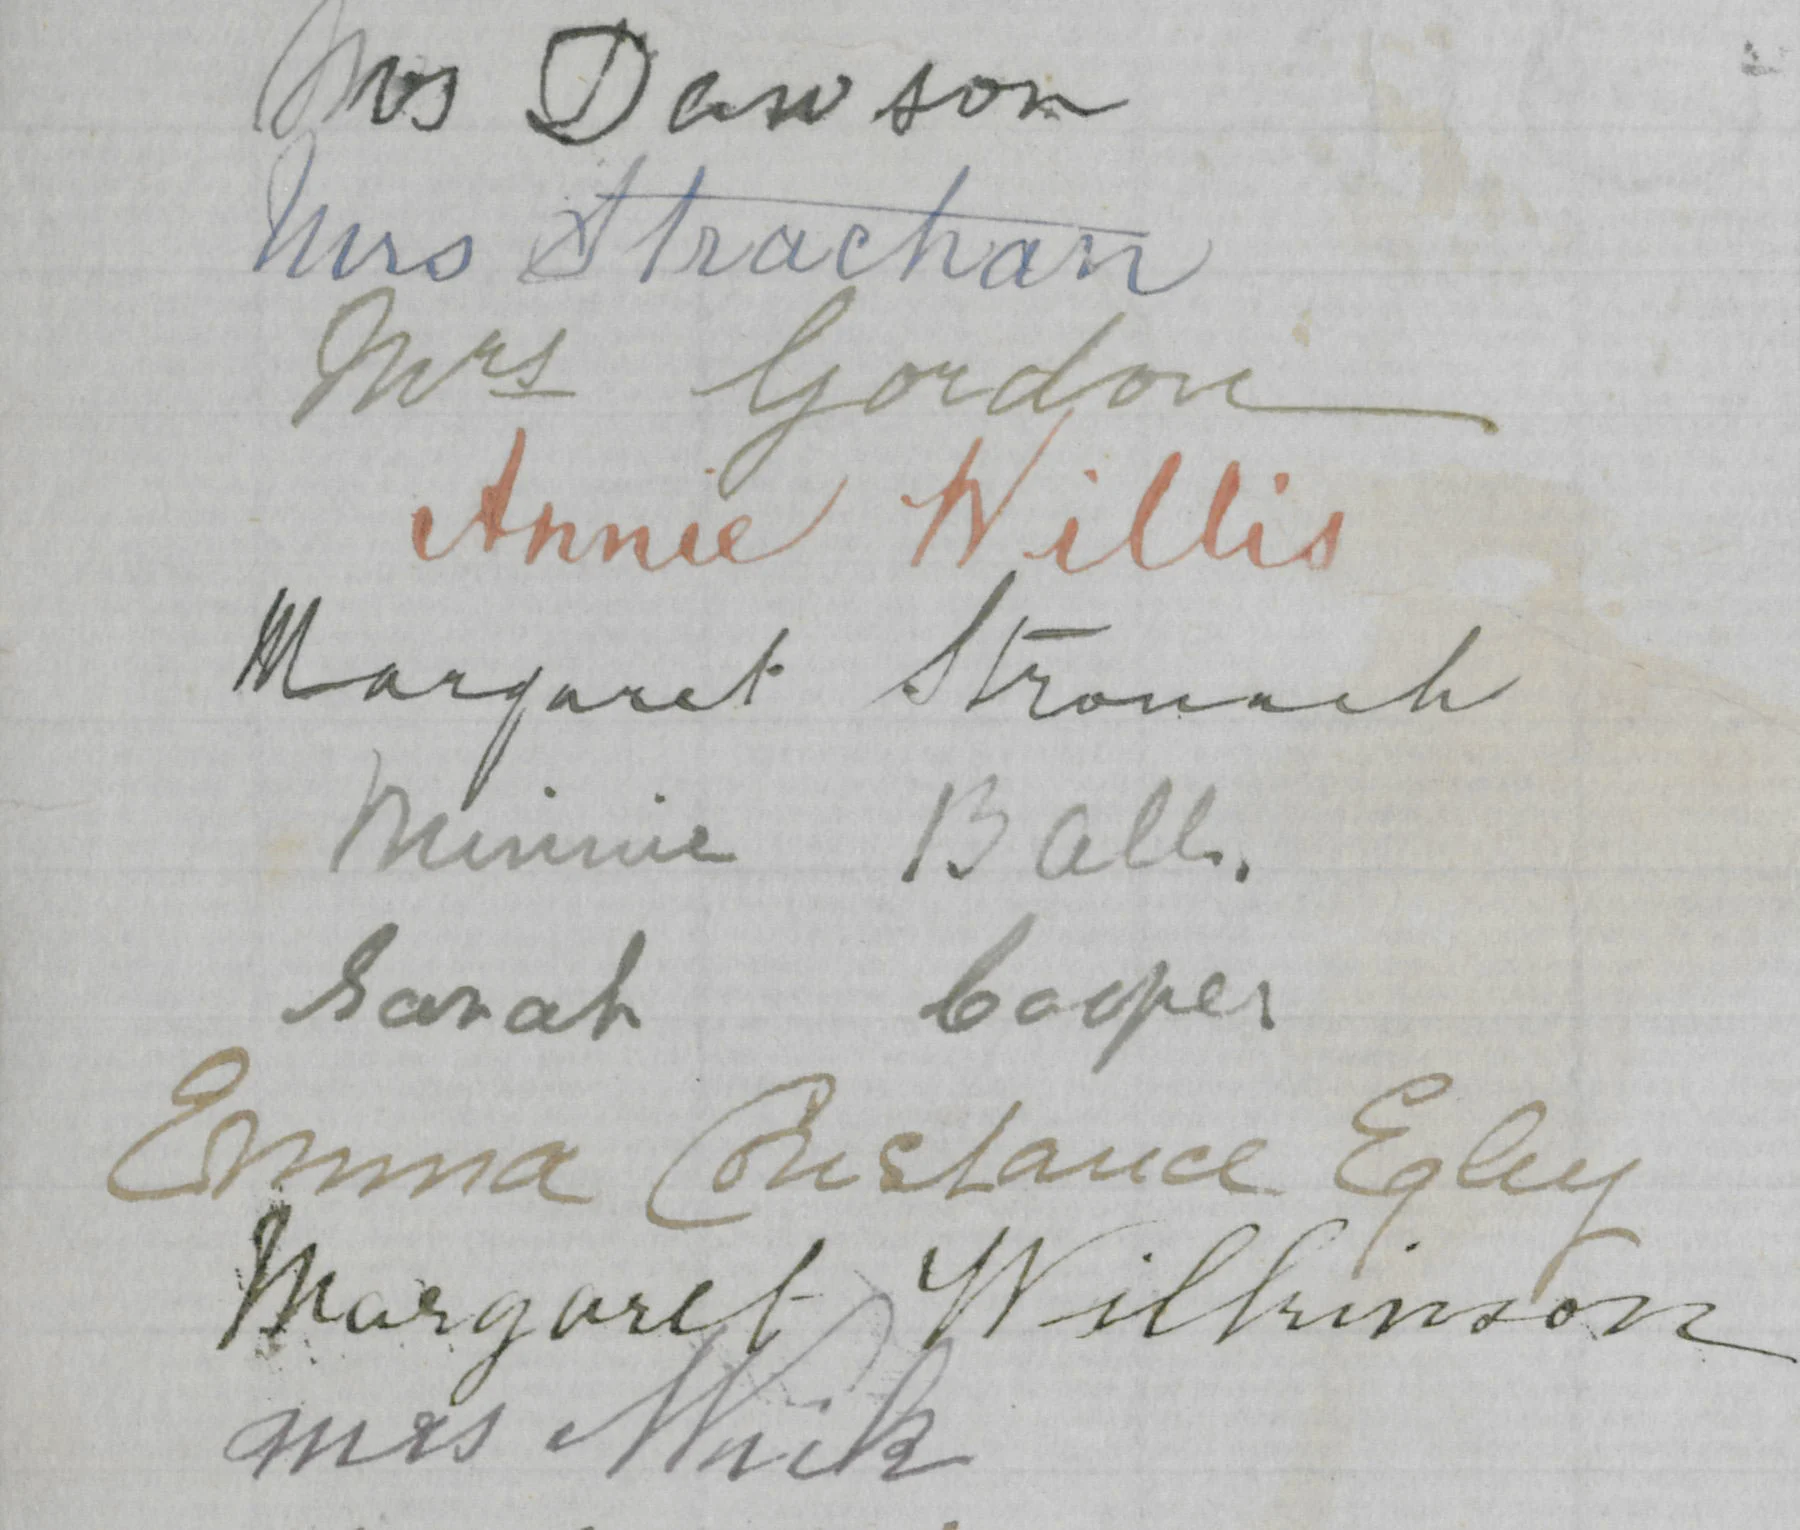 Mrs Dawson
Mrs Strachan
Mrs Gordon
Annie Willis
Margaret Stronach
Minnie Ball.
Sarah Cooper
Emma Constance Egley
Margaret Wilkinson
Mrs